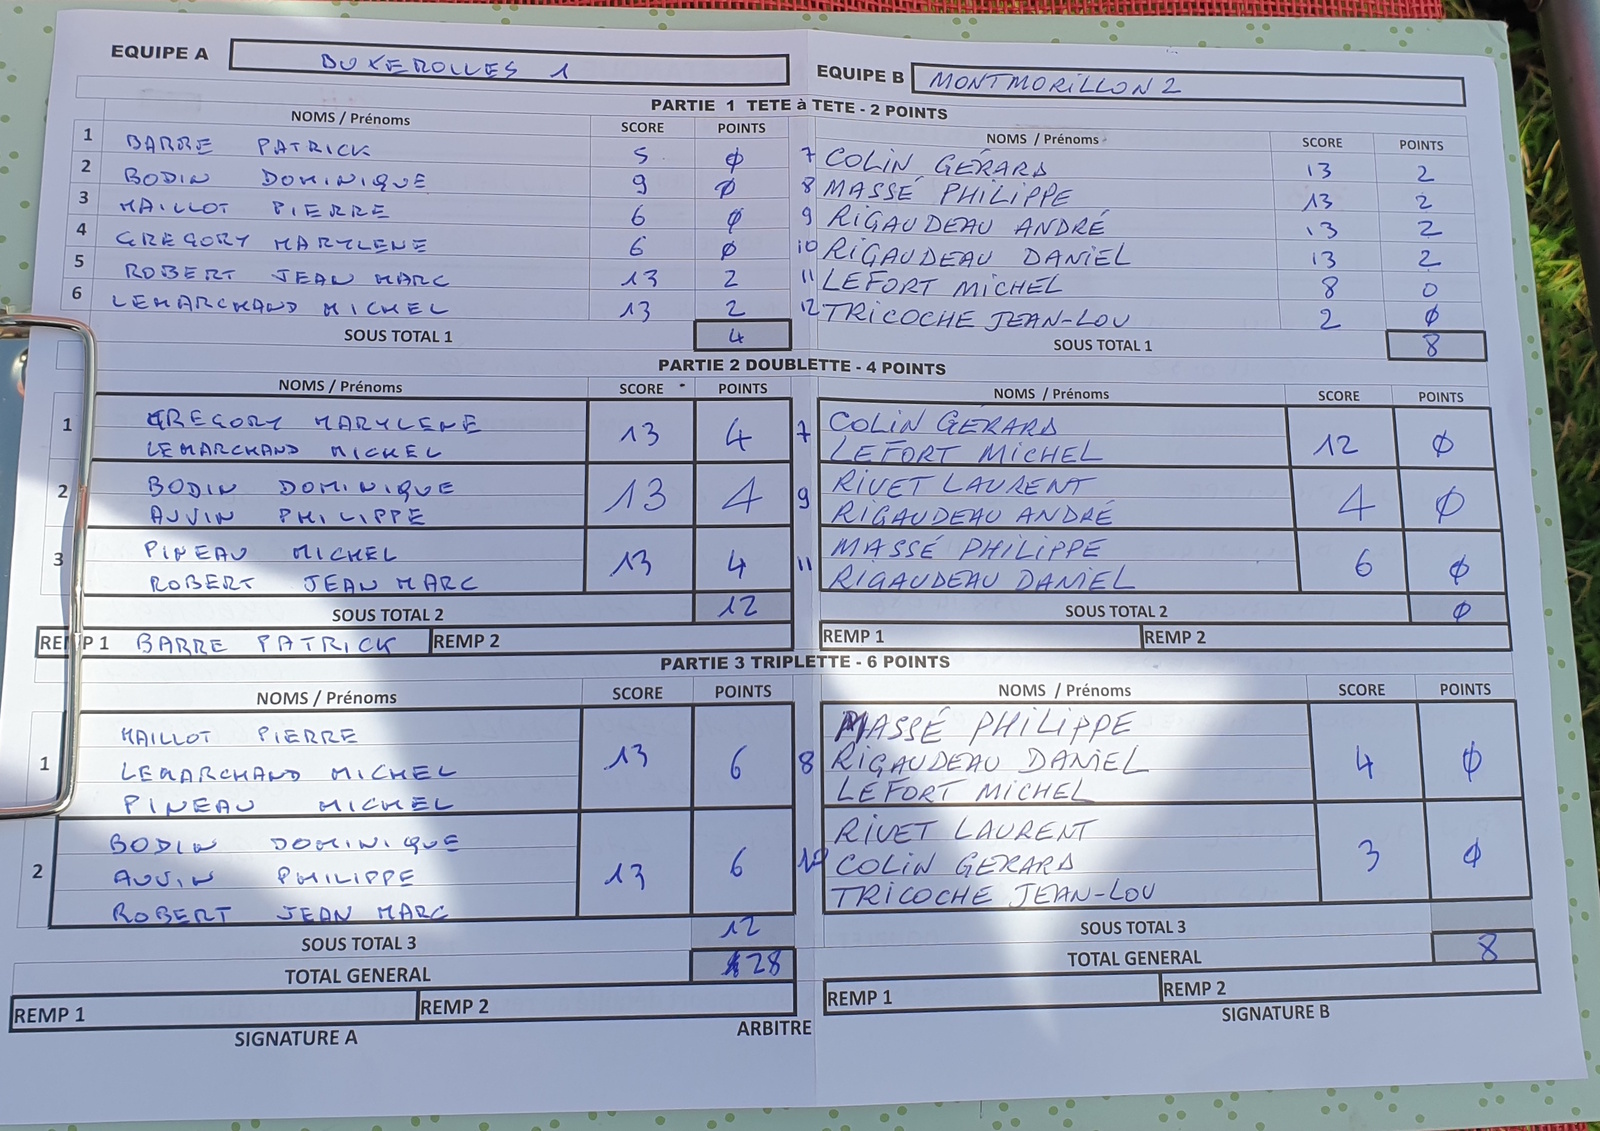 EQUIPE A BUXEROLLES 1 EQUIPE B MONTMORILLON 2
PARTIE 1 TETE à TETE - 2 POINTS
NOMS / Prénoms SCORE POINTS NOMS / Prénoms SCORE POINTS
1 BARRE PATRICK 5 0 7 COLIN GÉRARD 13 2
2 BODIN DOMINIQUE 9 0 8 MASSÉ PHILIPPE 13 2
3 MAILLOT PIERRE 6 0 9 RIGAUDEAU ANDRÉ 13 2
4 GREGORY MARYLENE 6 0 10 RIGAUDEAU DANIEL 13 2
5 ROBERT JEAN MARC 13 2 11 LEFORT MICHEL 8 0
6 LEMARCHAND MICHEL 13 2 12 TRICOCHE JEAN-LOU 2 0
SOUS TOTAL 1 4 SOUS TOTAL 1 8
PARTIE 2 DOUBLETTE - 4 POINTS
NOMS / Prénoms SCORE POINTS NOMS / Prénoms SCORE POINTS
1 GREGORY MARYLENE 13 4 7 COLIN GÉRARD 12 0
LEMARCHAND MICHEL LEFORT MICHEL
2 BODIN DOMINIQUE 13 4 9 RIVET LAURENT 4 0
AUVIN PHILIPPE RIGAUDEAU ANDRÉ
3 PINEAU MICHEL 13 4 11 MASSÉ PHILIPPE 6 0
ROBERT JEAN MARC RIGAUDEAU DANIEL
SOUS TOTAL 2 12 SOUS TOTAL 2 0
REMP 1 BARRE PATRICK REMP 2 REMP 1 REMP 2
PARTIE 3 TRIPLETTE - 6 POINTS
NOMS / Prénoms SCORE POINTS NOMS / Prénoms SCORE POINTS
1 MAILLOT PIERRE 13 6 8 MASSÉ PHILIPPE 4 0
LEMARCHAND MICHEL RIGAUDEAU DANIEL
PINEAU MICHEL LEFORT MICHEL
2 BODIN DOMINIQUE 13 6 10 RIVET LAURENT 3 0
AUVIN PHILIPPE COLIN GERARD
ROBERT JEAN MARC TRICOCHE JEAN-LOU
SOUS TOTAL 3 12 SOUS TOTAL 3
TOTAL GENERAL 28 TOTAL GENERAL 8
REMP 1 REMP 2 REMP 1 REMP 2
SIGNATURE A ARBITRE SIGNATURE B